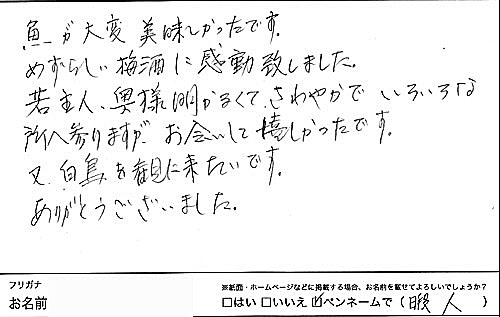 魚が大変美味しかったです。
めずらしい梅酒に感動致しました。
若主人、奥様明かるくて、さわやかで いろいろな
所へ参りますが、お会いして嬉しかったです。
又、白鳥を観に来たいです。
ありがとうございました。
フリガナ
お名前
※紙面・ホームページなどに掲載する場合、お名前を載せてよろしいでしょうか？
□はい □いいえ ☑ペンネームで（暇 人）